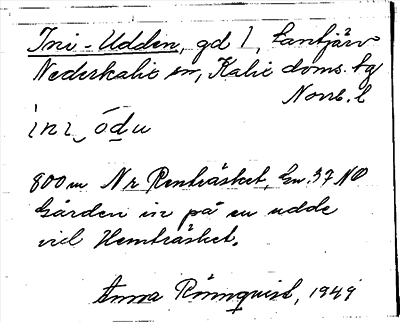 Ini-Udden, gd 1, Lantjärv
Nederkalix sn, Kalix doms. tg
Norrb. l
ini, ódu
800 m N r Rentväsket, Gn. 37 NO
Gården är på en udde
vid Hemträsket.
Anna Rönnquist, 1949